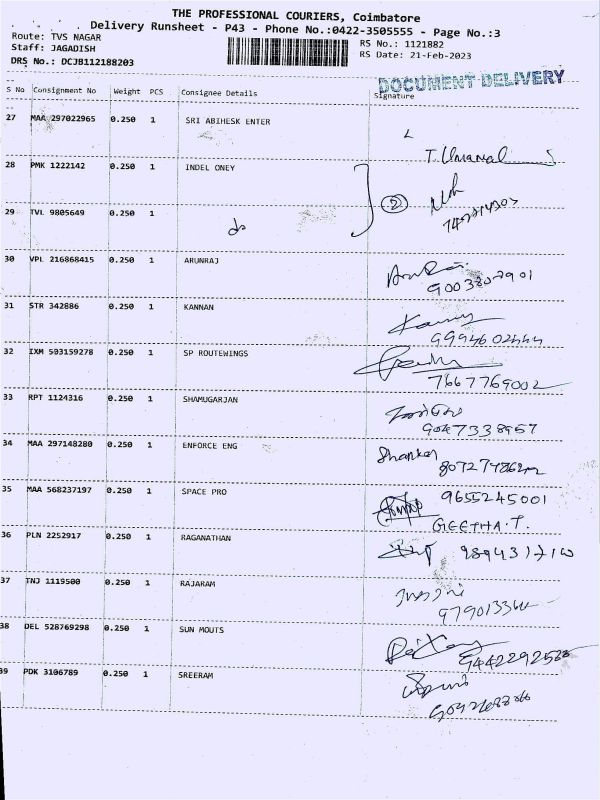 THE PROFESSIONAL COURIERS, Coimbatore
Delivery Runsheet - P43 - Phone No.:0422-3505555 - Page No.:3
Route: TVS NAGAR
RS No.: 1121882
Staff: JAGADISH
RS Date: 21-Feb-2023
DRS No.: DCJB112188203
DOCUMENT DELIVERY
S No Consignment No Weight PCS Consignee Details Signature
27 MAA 297022965 0.250 1 SRI ABIHESK ENTER
28 PMK 1222142 0.250 1 INDEL ONEY
2
29 TVL 9805649 0.250 1 do
30 VPL 216868415 0.250 1 ARUNRAJ
31 STR 342886 0.250 1 KANNAN
32 IXM 503159278 0.250 1 SP ROUTEWINGS
7667769002
33 RPT 1124316 0.250 1 SHAMUGARJAN
9047338957
34 MAA 297148280 0.250 1 ENFORCE ENG Shankar
35 MAA 568237197 0.250 1 SPACE PRO 9655245001
GEETHA.T.
36 PLN 2252917 0.250 1 RAGANATHAN
37 TNJ 1119500 0.250 1 RAJARAM
38 DEL 528769298 0.250 1 SUN MOUTS
39 PDK 3106789 0.250 1 SREERAM